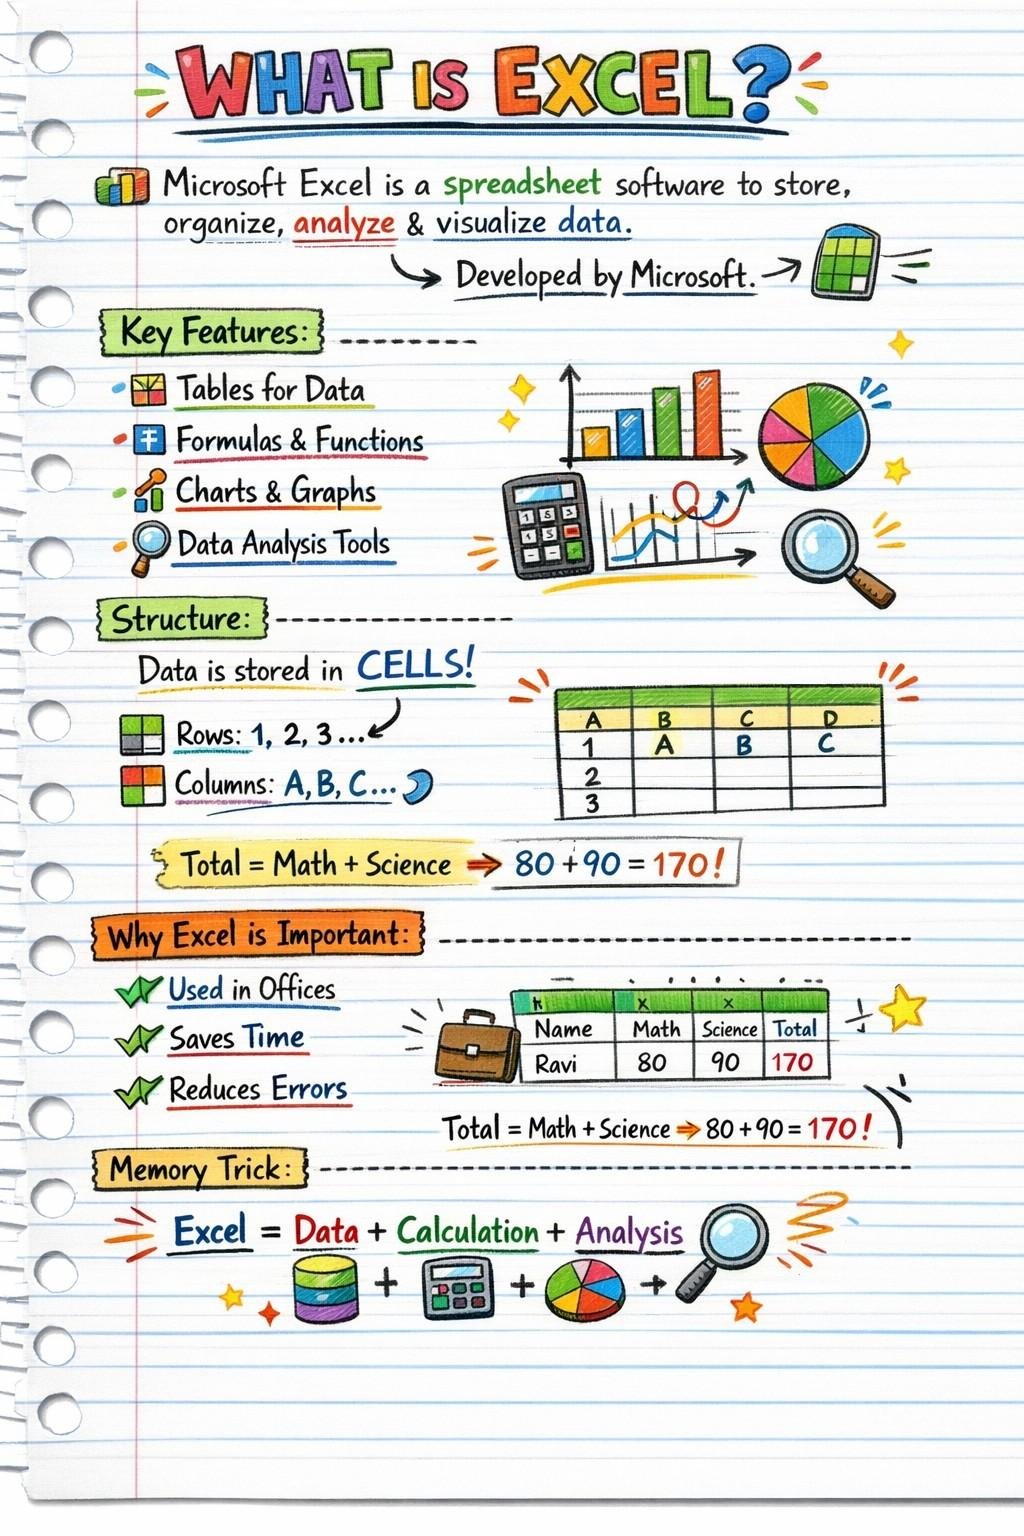 WHAT IS EXCEL?
Microsoft Excel is a spreadsheet software to store,
organize, analyze & visualize data.
Developed by Microsoft.
Key Features:
Tables for Data
Formulas & Functions
Charts & Graphs
Data Analysis Tools
Structure:
Data is stored in CELLS!
Rows: 1, 2, 3...
Columns: A, B, C...
A B C D
1 A B C
2
3
Total = Math + Science ➡ 80 + 90 = 170!
Why Excel is Important:
Used in Offices
Saves Time
Reduces Errors
Name Math Science Total
Ravi 80 90 170
Total = Math + Science ➡ 80 + 90 = 170!
Memory Trick:
Excel = Data + Calculation + Analysis
+ + →